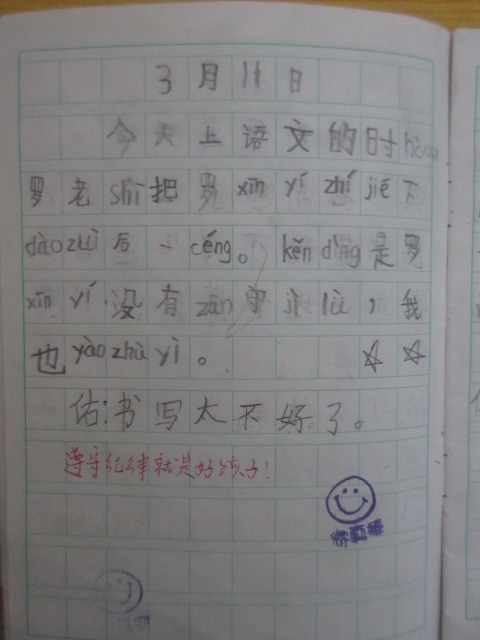 3月11日
今天上语文的时hòu
罗老shī把罗xīn yí zhí jiē下
dào zuì后一céng。kěn dìng是罗
xīn yí没有zūn守jì lǜ，我
也yào zhù yì。 ☆ ☆
估:书写太不好了。
遵守纪律就是好孩子!
你真棒